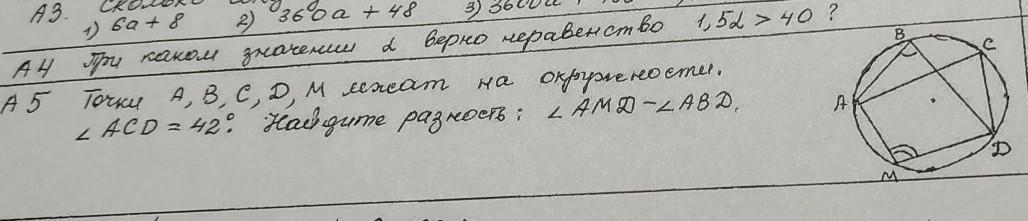 А3. Сколько
1) 6а + 8 2) 360а + 48 3)
А4 При каком значении α верно неравенство 1,5α > 40 ?
А5 Точки A, B, C, D, M лежат на окружности.
∠ACD = 42°. Найдите разность: ∠AMD - ∠ABD.
B
C
A
D
M